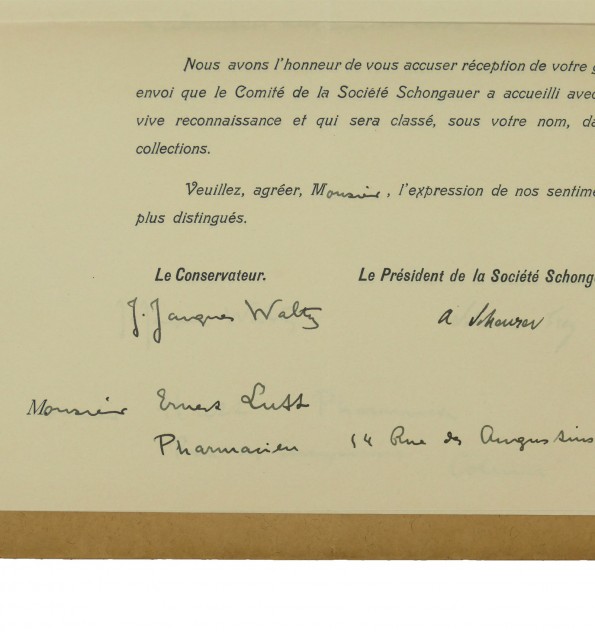 Nous avons l'honneur de vous accuser réception de votre g
envoi que le Comité de la Société Schongauer a accueilli avec
vive reconnaissance et qui sera classé, sous votre nom, da
collections.
Veuillez, agréer, Monsieur, l'expression de nos sentime
plus distingués.
Le Conservateur. Le Président de la Société Schonga
J. Jacques Waltz a Scheurer
Monsieur Ernest Lutt
Pharmacien 14 Rue des Augustins